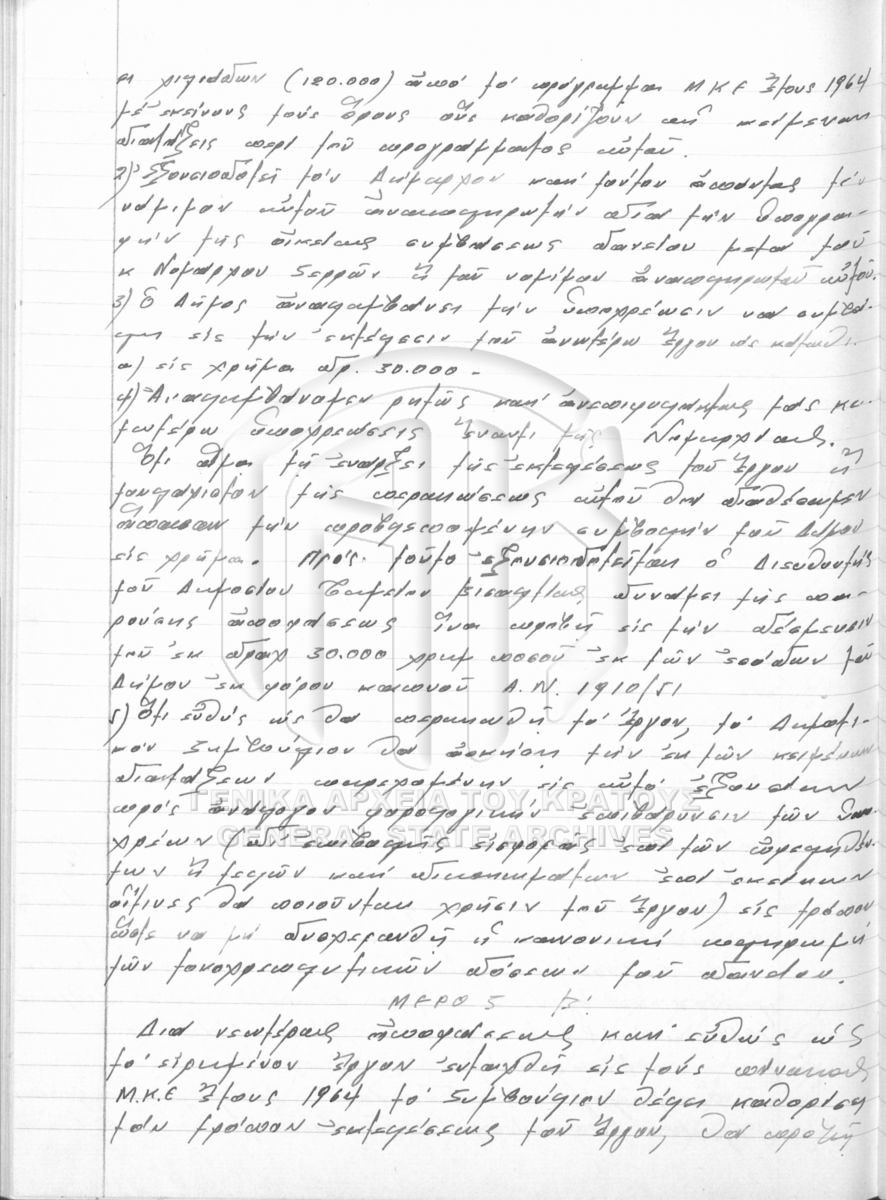 χιλιάδων (120.000) ἀπό τό πρόγραμμα Μ.Κ.Ε ἔτους 1964
μέ ἐκείνους τούς ὅρους οὕς καθορίζουν αἱ κείμεναι
διατάξεις περί τοῦ προγράμματος αὐτοῦ.
2) Ἐξουσιοδοτεῖ τόν Δήμαρχον καί τούτου ἀπόντος τόν
νόμιμον αὐτοῦ ἀναπληρωτήν διά τήν ὑπογρα-
φήν τῆς οἰκείας συμβάσεως δανείου μετά τοῦ
κ Νομάρχου Σερρῶν ἤ τοῦ νομίμου ἀναπληρωτοῦ αὐτοῦ.
3) Ὁ Δῆμος ἀναλαμβάνει τήν ὑποχρέωσιν να συμβά-
λῃ εἰς τήν ἐκτέλεσιν τοῦ ἀνωτέρω ἔργου ὡς κάτωθι.
α) εἰς χρῆμα δρ. 30.000 -
4) Ἀναλαμβάνομεν ρητῶς καί ἀνεπιφυλάκτως τάς κα-
τωτέρω ὑποχρεώσεις ἔναντι τῆς Νομαρχίας.
Ὅτι ἅμα τῇ ἐνάρξει τῆς ἐκτελέσεως τοῦ ἔργου ἤ
τουλάχιστον τῆς περαιώσεως αὐτοῦ θά διαθέσωμεν
ἅπασαν τήν προβλεπομένην συμβολήν τοῦ Δήμου
εἰς χρῆμα. Πρός τοῦτο ἐξουσιοδοτεῖται ὁ Διευθυντής
τοῦ Δημοσίου Ταμείου Βισαλτίας δυνάμει τῆς πα-
ρούσης ἀποφάσεως ἵνα προβῇ εἰς τήν δέσμευσιν
τοῦ ἐκ δραχ 30.000 χρημ ποσοῦ ἐκ τῶν ἐσόδων τοῦ
Δήμου ἐκ φόρου καπνοῦ Α.Ν. 1910/51
5) Ὅτι εὐθύς ὡς θά περαιωθῇ τό ἔργον, τό Δημοτι-
κόν Συμβούλιον θά ἀσκήσῃ τήν ἐκ τῶν κειμένων
διατάξεων παρεχομένην εἰς αὐτό ἐξουσίαν
πρός ἀνάλογον φορολογικήν ἐπιβάρυνσιν τῶν ὑπο-
χρέων (δι' ἐπιβολῆς εἰσφορᾶς ἐπί τῶν ὠφεληθέν-
των ἤ τελῶν καί δικαιωμάτων ἐπί ἐκείνων
οἵτινες θά ποιοῦνται χρῆσιν τοῦ ἔργου) εἰς τρόπον
ὥστε νά μή δυσχερανθῇ ἡ κανονική πληρωμή
τῶν τοκοχρεωλυτικῶν δόσεων τοῦ δανείου.
ΜΕΡΟΣ β'.
Διά νεωτέρας ἀποφάσεως καί εὐθύς ὡς
τό εἰρημένον ἔργον ἐνταχθῇ εἰς τούς πίνακας
Μ.Κ.Ε ἔτους 1964 τό Συμβούλιον θέλει καθορίσῃ
τόν τρόπον ἐκτελέσεως τοῦ ἔργου, θά προβῇ
ΓΕΝΙΚΑ ΑΡΧΕΙΑ ΤΟΥ ΚΡΑΤΟΥΣ
GENERAL STATE ARCHIVES